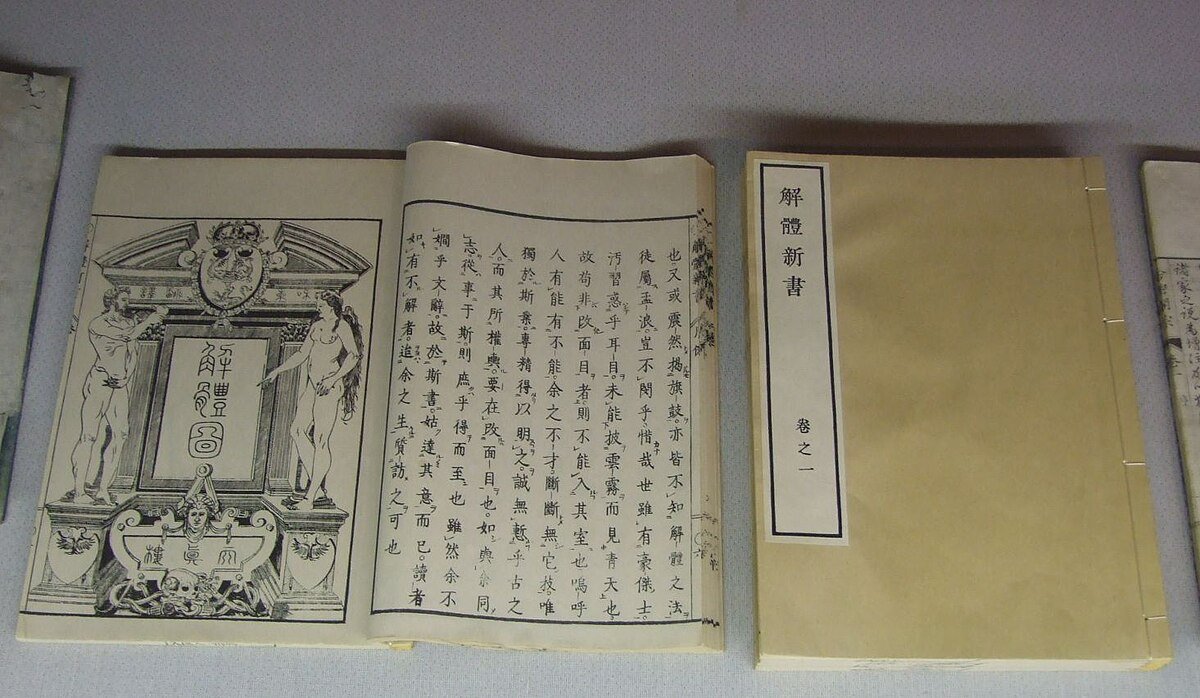 解體新書
卷之一
也又或震然揭旗鼓。亦皆不知解體之法
徒屬孟浪。豈不閔乎。惜哉世雖有豪傑士。
汚習惑乎耳目。未能披雲霧而見青天也。
故苟非改面目者。則不能入其室也嗚呼
人有能有不能。余之不才。斷斷無它技。唯
獨於斯業。專精得以明之。誠無慙乎古之
人。而其所權輿。要在改面目也。如與余同
志。從事于斯。則庶乎得而至也雖然余不
嫺乎文辭。故於斯書。姑達其意而已。讀者
如有不解者。追余之生質訪之可也
解體圖
天眞樓